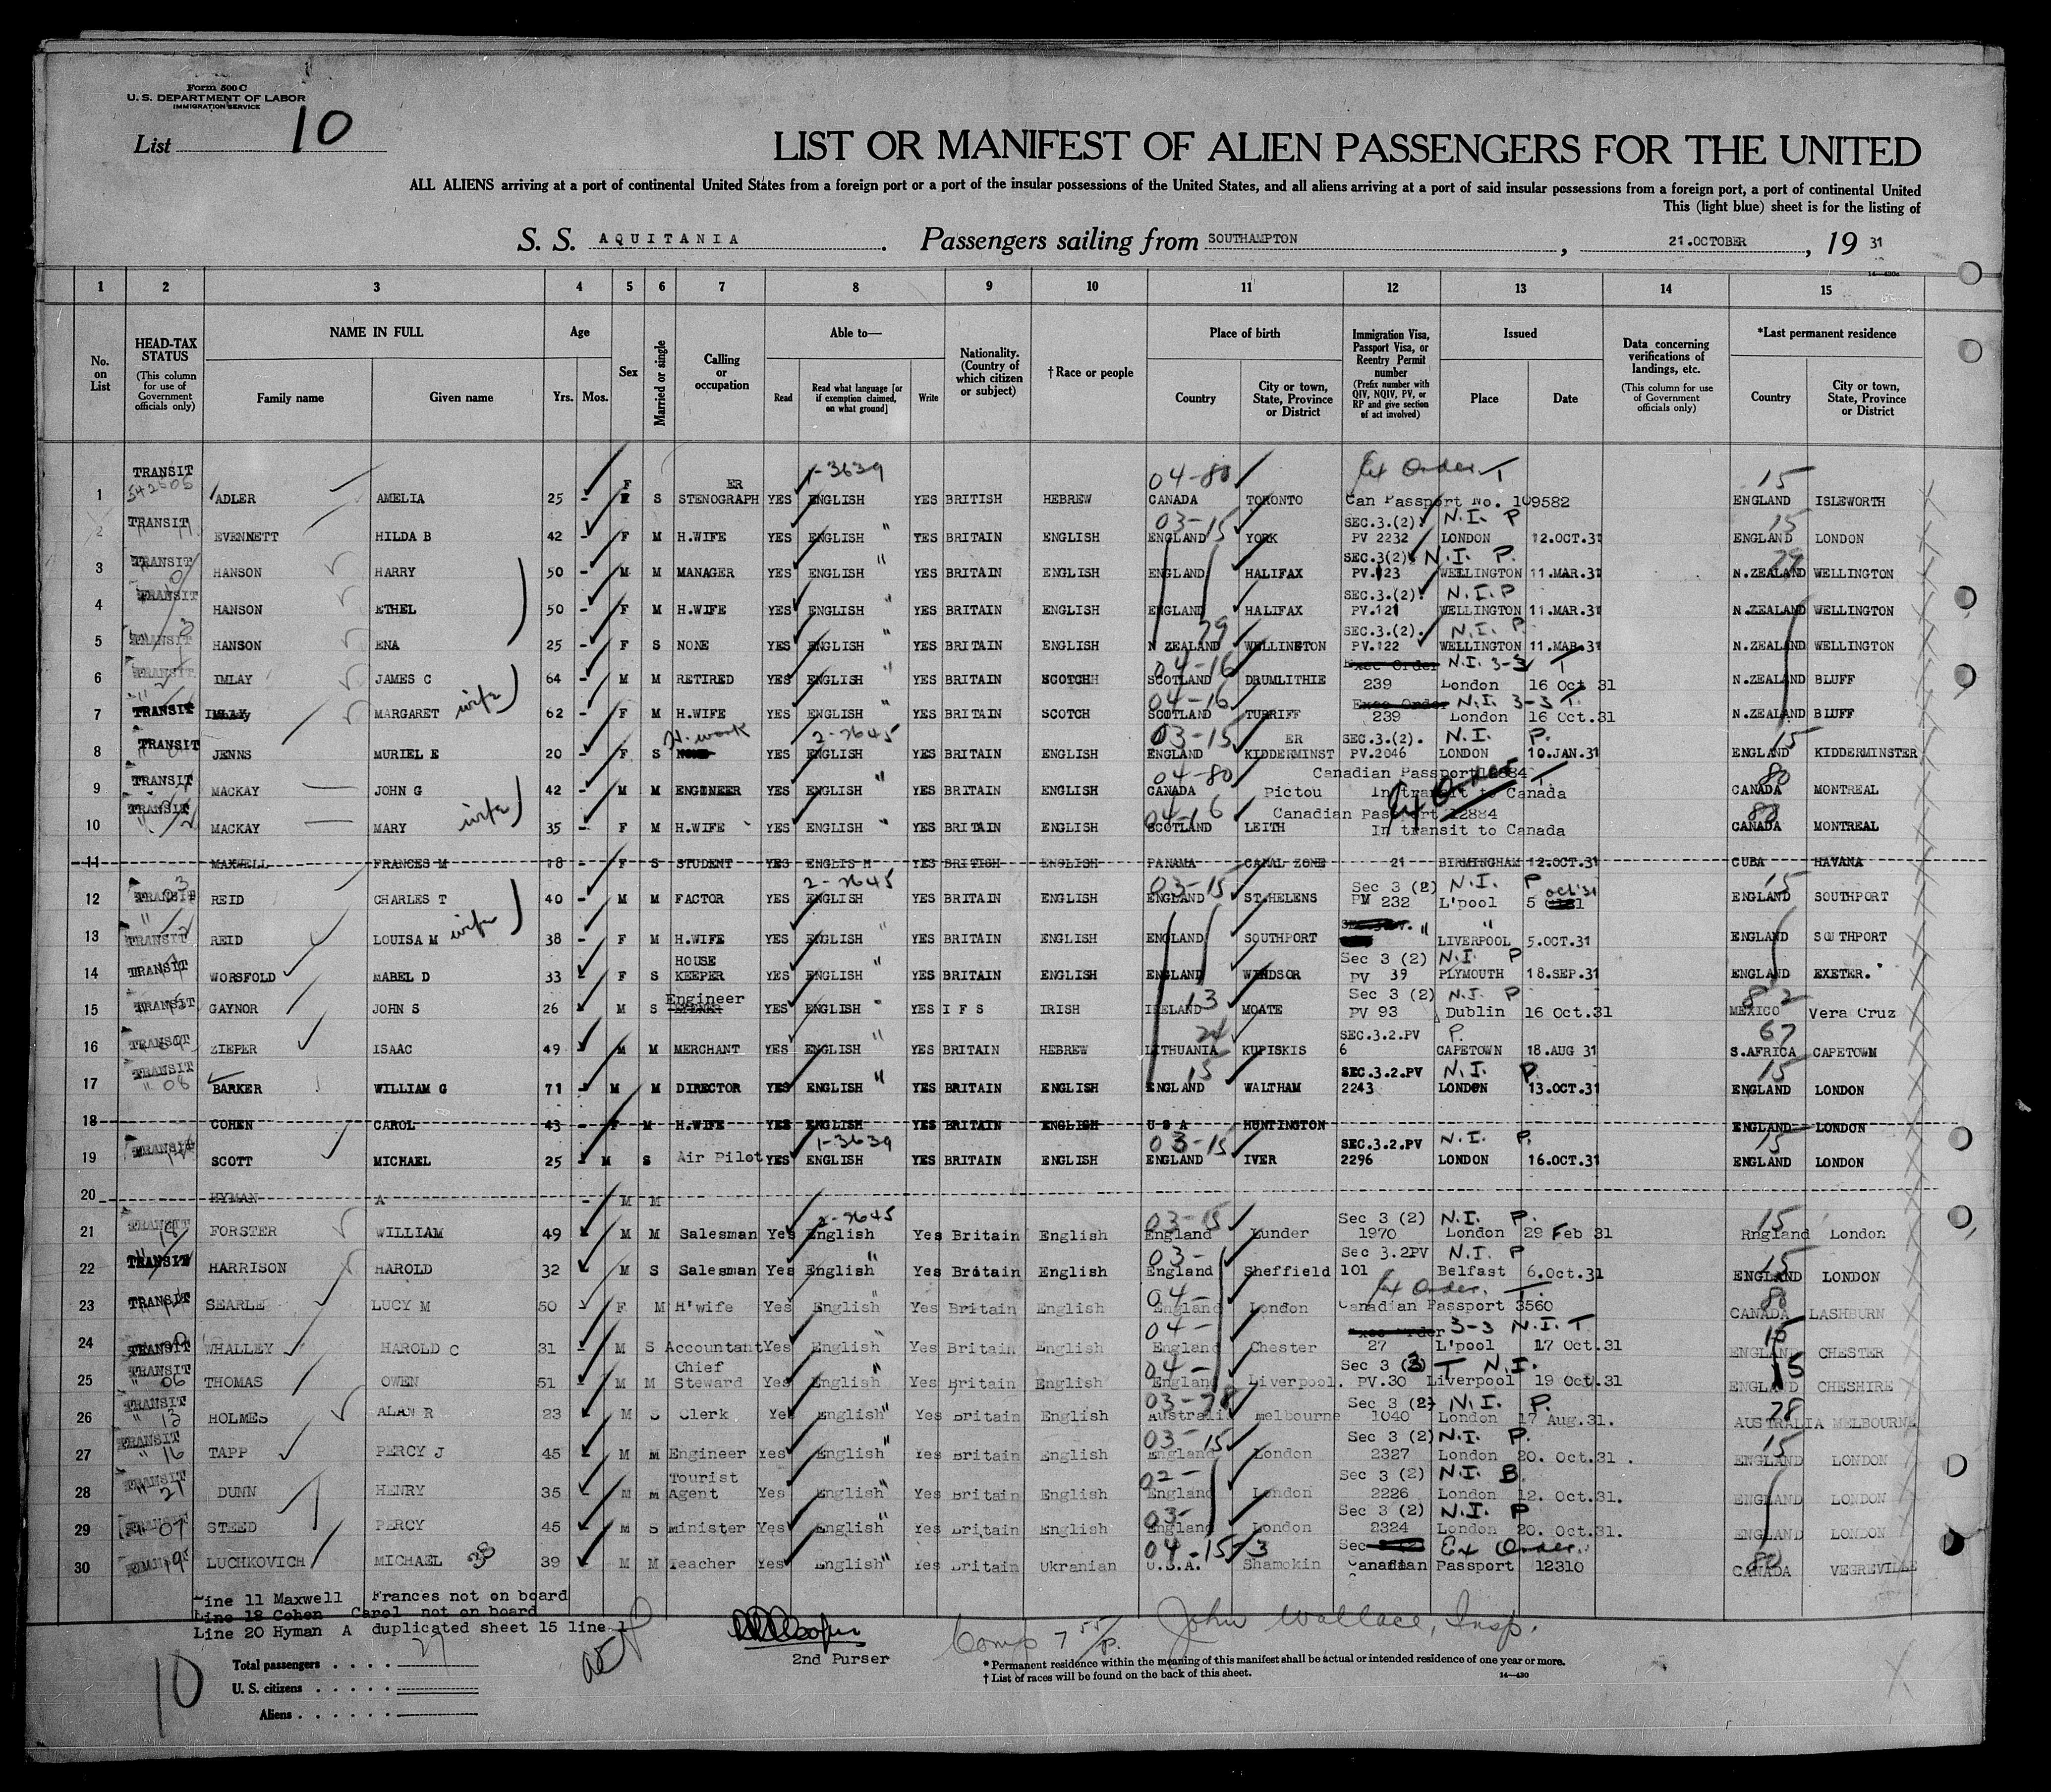 Form 500 C
U. S. DEPARTMENT OF LABOR
IMMIGRATION SERVICE
List 10
LIST OR MANIFEST OF ALIEN PASSENGERS FOR THE UNITED
ALL ALIENS arriving at a port of continental United States from a foreign port or a port of the insular possessions of the United States, and all aliens arriving at a port of said insular possessions from a foreign port, a port of continental United
This (light blue) sheet is for the listing of
S. S. AQUITANIA. Passengers sailing from SOUTHAMPTON, 21.OCTOBER, 19 31
1 2 3 4 5 6 7 8 9 10 11 12 13 14 15
No. on List
HEAD-TAX STATUS (This column for use of Government officials only)
NAME IN FULL Family name Given name
Age Yrs. Mos.
Sex
Married or single
Calling or occupation
Able to— Read Read what language [or if exemption claimed, on what ground] Write
Nationality. (Country of which citizen or subject)
†Race or people
Place of birth Country City or town, State, Province or District
Immigration Visa, Passport Visa, or Reentry Permit number (Prefix number with QIV, NQIV, PV, or RP and give section of act involved)
Issued Place Date
Data concerning verifications of landings, etc. (This column for use of Government officials only)
*Last permanent residence Country City or town, State, Province or District
TRANSIT 1-3639 04-80 Ex Order T 15
1 ADLER AMELIA 25 - F S STENOGRAPHER YES ENGLISH YES BRITISH HEBREW CANADA TORONTO Can Passport No. 109582 ENGLAND ISLEWORTH
TRANSIT 03-15 SEC.3.(2). N.I. P 15
2 EVENNETT HILDA B 42 - F M H.WIFE YES ENGLISH " YES BRITAIN ENGLISH ENGLAND YORK PV 2232 LONDON 12.OCT.31 ENGLAND LONDON
TRANSIT SEC.3(2). N.I. P. 79
3 HANSON HARRY 50 - M M MANAGER YES ENGLISH " YES BRITAIN ENGLISH ENGLAND HALIFAX PV.123 WELLINGTON 11.MAR.31 N.ZEALAND WELLINGTON
TRANSIT SEC.3.(2). N.I.P
4 HANSON ETHEL 50 - F M H.WIFE YES ENGLISH " YES BRITAIN ENGLISH ENGLAND HALIFAX PV.121 WELLINGTON 11.MAR.31 N.ZEALAND WELLINGTON
TRANSIT 79 SEC.3.(2). N.I. P
5 HANSON ENA 25 - F S NONE YES ENGLISH " YES BRITAIN ENGLISH N ZEALAND WELLINGTON PV.122 WELLINGTON 11.MAR.31 N.ZEALAND WELLINGTON
TRANSIT 04-16 Exec Order N.I. 3-3 T
6 IMLAY JAMES C 64 - M M RETIRED YES ENGLISH " YES BRITAIN SCOTCH SCOTLAND DRUMLITHIE 239 London 16 Oct 31 N.ZEALAND BLUFF
TRANSIT wife 04-16 Exec Order N.I. 3-3 T.
7 IMLAY MARGARET 62 - F M H.WIFE YES ENGLISH YES BRITAIN SCOTCH SCOTLAND TURRIFF 239 London 16 Oct.31 N.ZEALAND BLUFF
TRANSIT H. work 2-7645 03-15 SEC.3.(2). N.I. P. 15
8 JENNS MURIEL E 20 - F S NONE YES ENGLISH YES BRITAIN ENGLISH ENGLAND KIDDERMINSTER PV.2046 LONDON 10.JAN.31 ENGLAND KIDDERMINSTER
TRANSIT 04-80 Canadian Passport 12884 T. 80
9 MACKAY JOHN G 42 - M M ENGINEER YES ENGLISH " YES BRITAIN ENGLISH CANADA Pictou In transit to Canada CANADA MONTREAL
TRANSIT wife 04-16 Canadian Passport 12884 Ex Order 80
10 MACKAY MARY 35 - F M H.WIFE YES ENGLISH " YES BRITAIN ENGLISH SCOTLAND LEITH In transit to Canada CANADA MONTREAL
11 MAXWELL FRANCES M 18 - F S STUDENT YES ENGLISH YES BRITISH ENGLISH PANAMA CANAL ZONE 21 BIRMINGHAM 12.OCT.31 CUBA HAVANA
TRANSIT 2-7645 03-15 Sec 3 (2) N.I. P oct '31 15
12 REID CHARLES T 40 - M M FACTOR YES ENGLISH YES BRITAIN ENGLISH ENGLAND ST.HELENS PV 232 L'pool 5 ENGLAND SOUTHPORT
TRANSIT wife
13 REID LOUISA M 38 - F M H.WIFE YES ENGLISH " YES BRITAIN ENGLISH ENGLAND SOUTHPORT " " LIVERPOOL 5.OCT.31 ENGLAND SOUTHPORT
TRANSIT HOUSE Sec 3 (2) N.I. P
14 WORSFOLD MABEL D 33 - F S KEEPER YES ENGLISH " YES BRITAIN ENGLISH ENGLAND WINDSOR PV 39 PLYMOUTH 18.SEP.31 ENGLAND EXETER.
TRANSIT Engineer 13 Sec 3 (2) N.I. P 82
15 GAYNOR JOHN S 26 M S YES ENGLISH " YES I F S IRISH IRELAND MOATE PV 93 Dublin 16 Oct.31 MEXICO Vera Cruz
TRANSIT 24 SEC.3.2.PV P. 67
16 ZIEPER ISAAC 49 M M MERCHANT YES ENGLISH " YES BRITAIN HEBREW LITHUANIA KUPISKIS 6 CAPETOWN 18.AUG 31 S.AFRICA CAPETOWN
TRANSIT " 08 15 SEC.3.2.PV N.I. P. 15
17 BARKER WILLIAM G 71 - M M DIRECTOR YES ENGLISH " YES BRITAIN ENGLISH ENGLAND WALTHAM 2243 LONDON 13.OCT.31 ENGLAND LONDON
18 COHEN CAROL 43 - F M H.WIFE YES ENGLISH YES BRITAIN ENGLISH U S A HUNTINGTON ENGLAND LONDON
TRANSIT 1-3639 03-15 SEC.3.2.PV N.I. P. 15
19 SCOTT MICHAEL 25 - M S Air Pilot YES ENGLISH YES BRITAIN ENGLISH ENGLAND IVER 2296 LONDON 16.OCT.31 ENGLAND LONDON
20 HYMAN A - M M
TRANSIT 2-7645 03-15 Sec 3 (2) N.I. P. 15
21 FORSTER WILLIAM 49 M M Salesman Yes English Yes Britain English England Lunder 1970 London 29 Feb 31 Rngland London
TRANSIT 03- Sec 3.2PV N.I. P 15
22 HARRISON HAROLD 32 M S Salesman Yes English " Yes Britain English England Sheffield 101 Belfast 6.Oct.31 ENGLAND LONDON
TRANSIT 04- Ex Order. T. 80
23 SEARLE LUCY M 50 F M H'wife Yes English " Yes Britain English England London Canadian Passport 3560 CANADA LASHBURN
TRANSIT 04- Exec Order 3-3 N.I.T 15
24 WHALLEY HAROLD C 31 - M S Accountant Yes English " Yes Britain English England Chester 27 L'pool 17 Oct.31 ENGLAND CHESTER
TRANSIT " 06 Chief 04- Sec 3 (3) T N.I. 15
25 THOMAS OWEN 51 - M M Steward Yes English " Yes Britain English England Liverpool. PV.30 Liverpool 19 Oct.31 ENGLAND CHESHIRE
TRANSIT " 13 03-78 Sec 3 (2) N.I. P. 78
26 HOLMES ALAN R 23 M S Clerk Yes English " Yes Britain English Australia Melbourne 1040 London 17 Aug.31. AUSTRALIA MELBOURNE
TRANSIT " 16 03-15 Sec 3 (2) N.I. P. 15
27 TAPP PERCY J 45 M M Engineer Yes English " Yes Britain English England London 2327 London 20. Oct.31. ENGLAND LONDON
TRANSIT " 21 Tourist 02- Sec 3 (2) N.I. B.
28 DUNN HENRY 35 - M M Agent Yes English " Yes Britain English England London 2226 London 12. Oct.31. ENGLAND LONDON
TRANSIT 07 03- Sec 3 (2) N.I. P
29 STEED PERCY 45 M S minister Yes English " Yes Britain English England London 2324 London 20. Oct.31. ENGLAND LONDON
19 38 04-15 Sec Ex Order. 80
30 LUCHKOVICH MICHAEL 39 M M Teacher Yes English " Yes Britain Ukranian U.S.A. Shamokin Canadian Passport 12310 CANADA VEGREVILLE
Line 11 Maxwell Frances not on board
Line 18 Cohen Carol not on board
Line 20 Hyman A duplicated sheet 15 line 1
2nd Purser
Comp 7 55/P. John Wallace, Insp.
10
Total passengers . . . . 27
U. S. citizens . . . . .
Aliens . . . . . .
* Permanent residence within the meaning of this manifest shall be actual or intended residence of one year or more.
† List of races will be found on the back of this sheet. 14—430